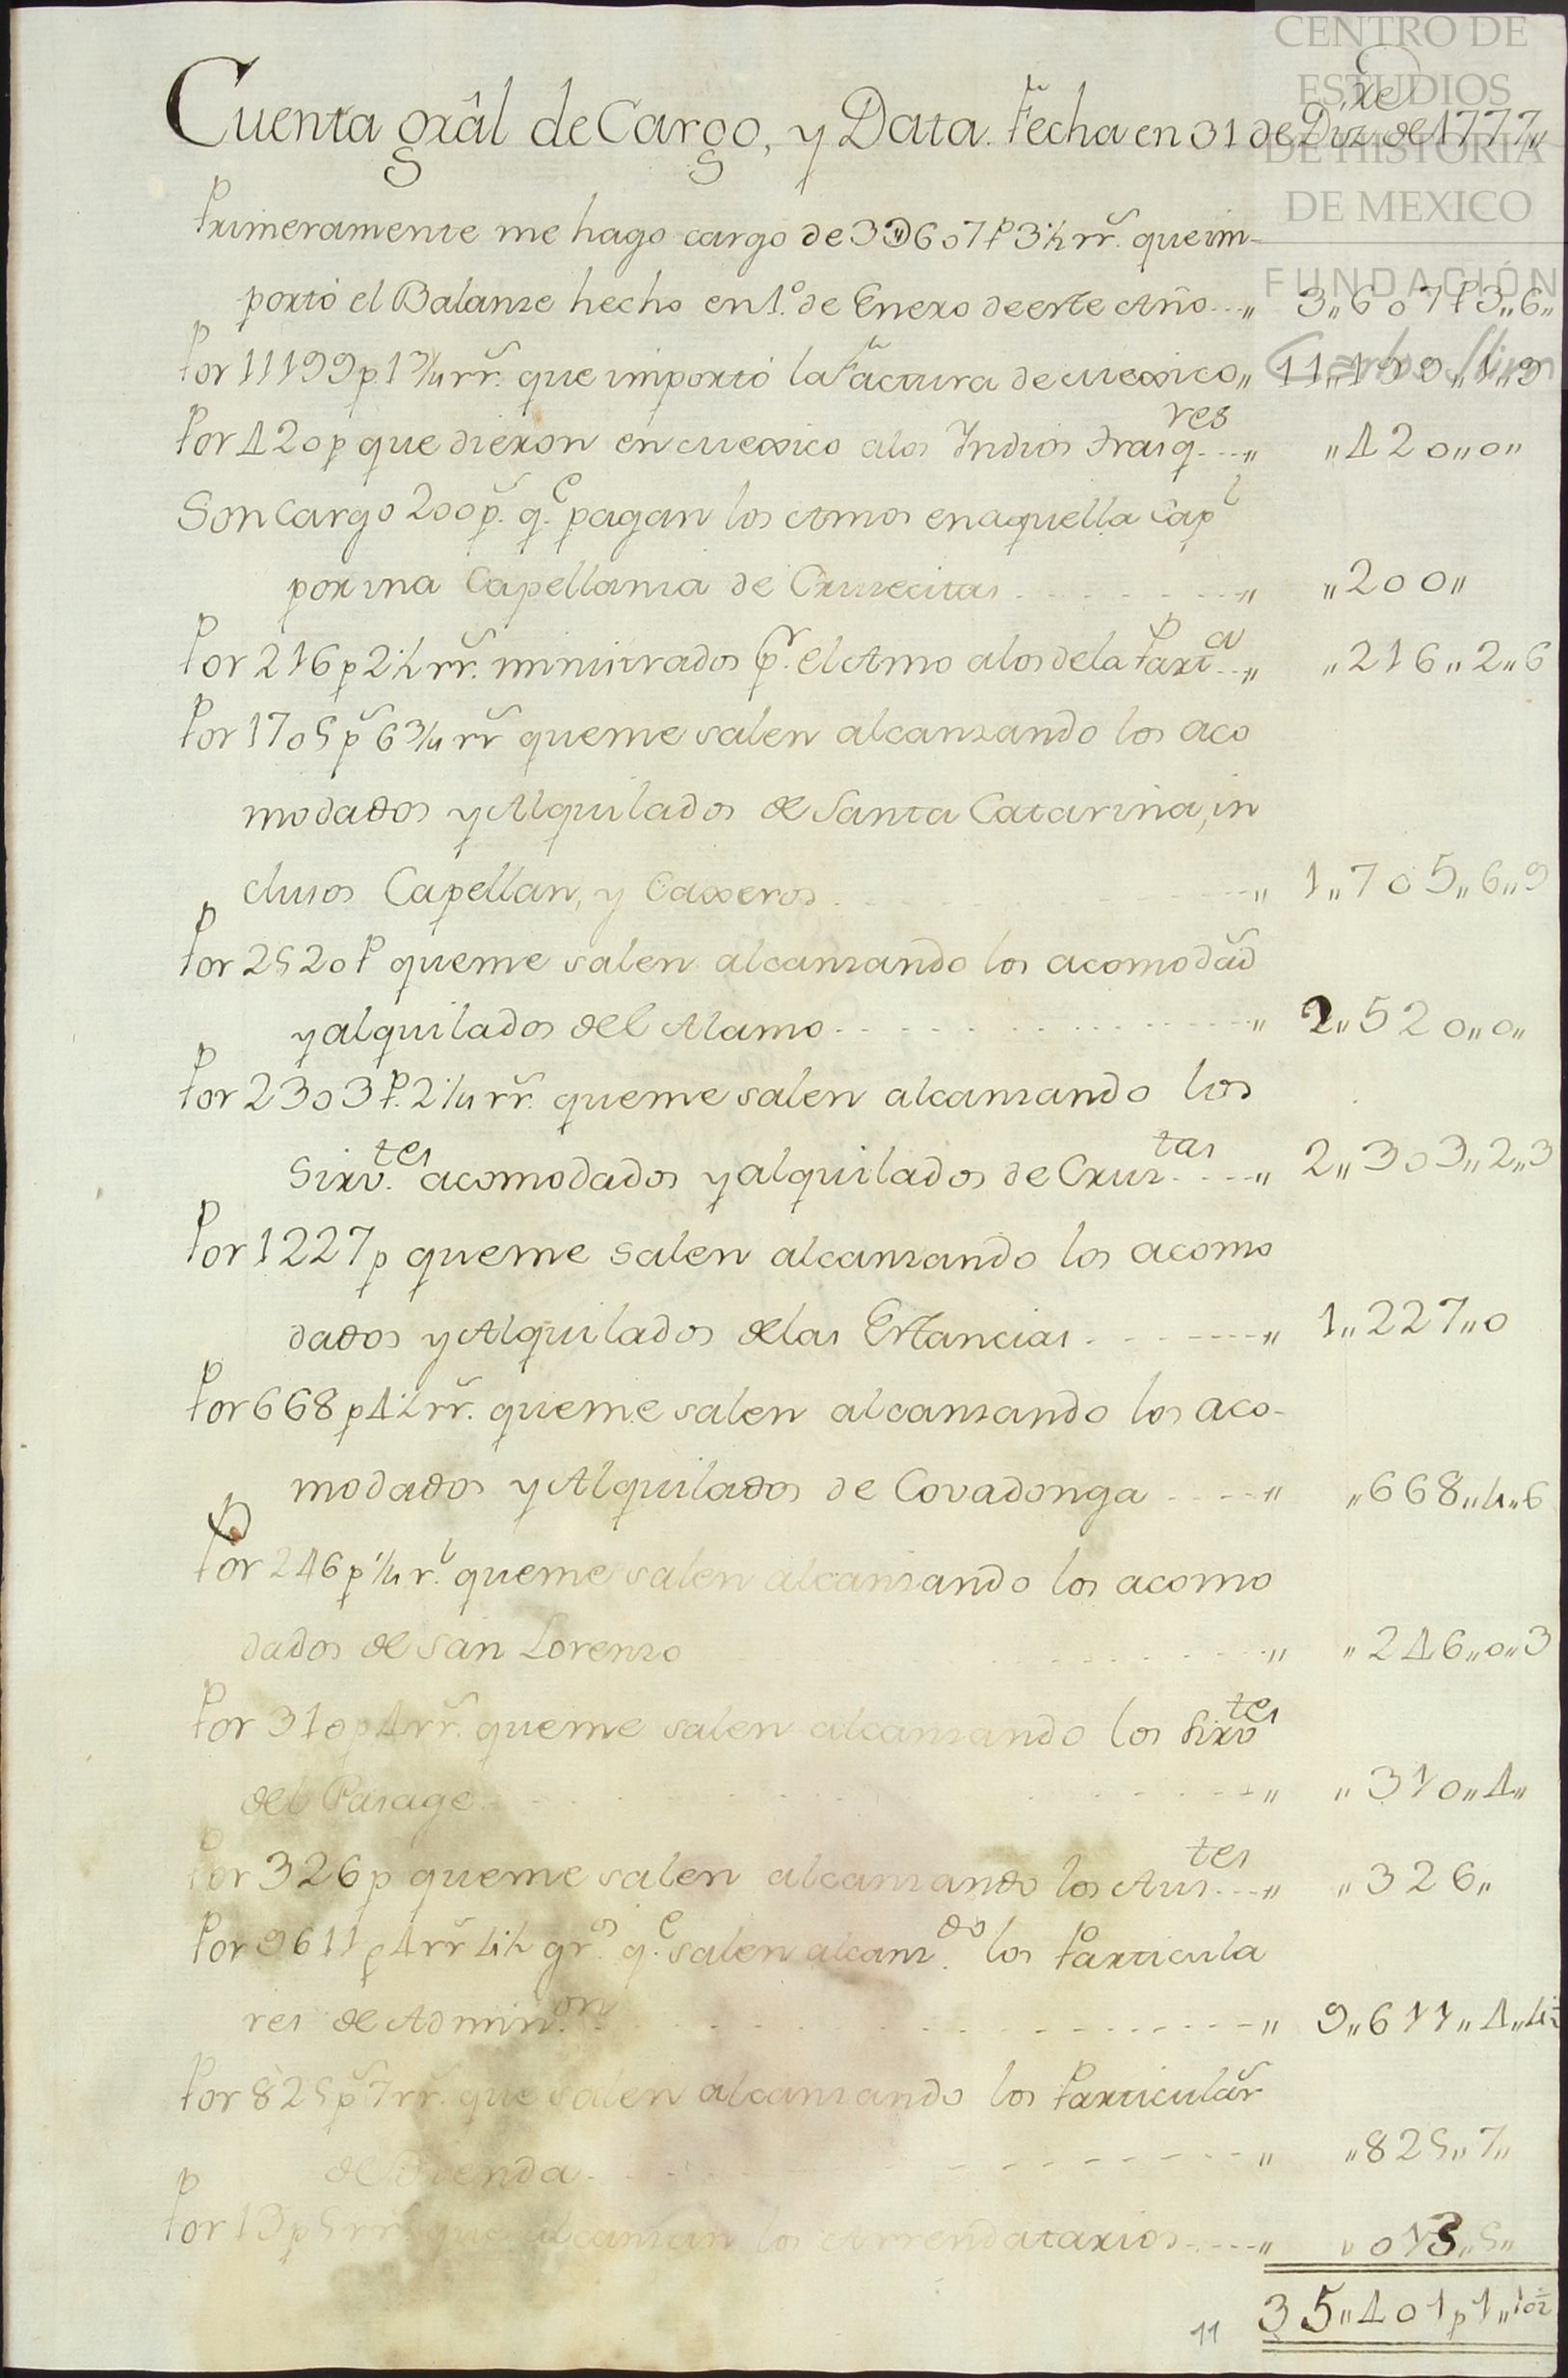 CENTRO DE
ESTUDIOS
DE HISTORIA
DE MEXICO
FUNDACIÓN
Carlos Slim
Cuenta grâl de Cargo, y Data. Fecha en 31 de Diz.re de 1777„
Primeramente me hago cargo de 3D607 p 3½ rr.s que im-
portó el Balanze hecho en 1.º de Enero de este Año...„ 3„607 p 3„6„
Por 11199 p 1¾ rr.s que importó la Factura de Mexico„ 11„199„1„9
Por 420 p que dieron en Mexico a los Indios Trasq.res...„ „420„0„
Son Cargo 200 p.s q.e pagan los Amos en aquella Cap.l
por una Capellania de Cruzecitas . . . . . . „ „200„
Por 216 p 2½ rr.s ministrados p.r el Amo a los de la Part.a...„ „216„2„6
Por 1705 p.s 6¾ rr.s que me salen alcanzando los aco
modados y Alquilados de Santa Catarina, in
clusos Capellan, y Caxeros . . . . . . „ 1„705„6„9
Por 2520 p que me salen alcanzando los acomodad.s
y alquilados del Alamo . . . . . . „ 2„520„0„
Por 2303 p. 2¼ rr.s que me salen alcanzando los
Sirv.tes acomodados y alquilados de Cruz.tas . . . „ 2„303„2„3
Por 1227 p que me salen alcanzando los acomo
dados y Alquilados de las Estancias . . . . . „ 1„227„0
Por 668 p 4½ rr.s que me salen alcanzando los aco-
modados y Alquilados de Covadonga . . . . „ „668„4„6
Por 246 p ¼ r.l que me salen alcanzando los acomo
dados de San Lorenzo . . . . . . „ „246„0„3
Por 310 p 4 rr.s que me salen alcanzando los Sirv.tes
del Pasage . . . . . . „ „310„4„
Por 326 p que me salen alcanzando los Aus.tes...„ „326„
Por 9611 p 4 rr.s 4½ gr.s q.e salen alcanz.do los Particula
res de Admin.on . . . . . . „ 9„611„4„4½
Por 825 p.s 7 rr.s que salen alcanzando los Particular.s
de Tienda . . . . . . „ „825„7„
Por 13 p 5 rr.s que alcanzan los Arrendatarios . . . . „ „013„5„
11 35„401 p 1„10½